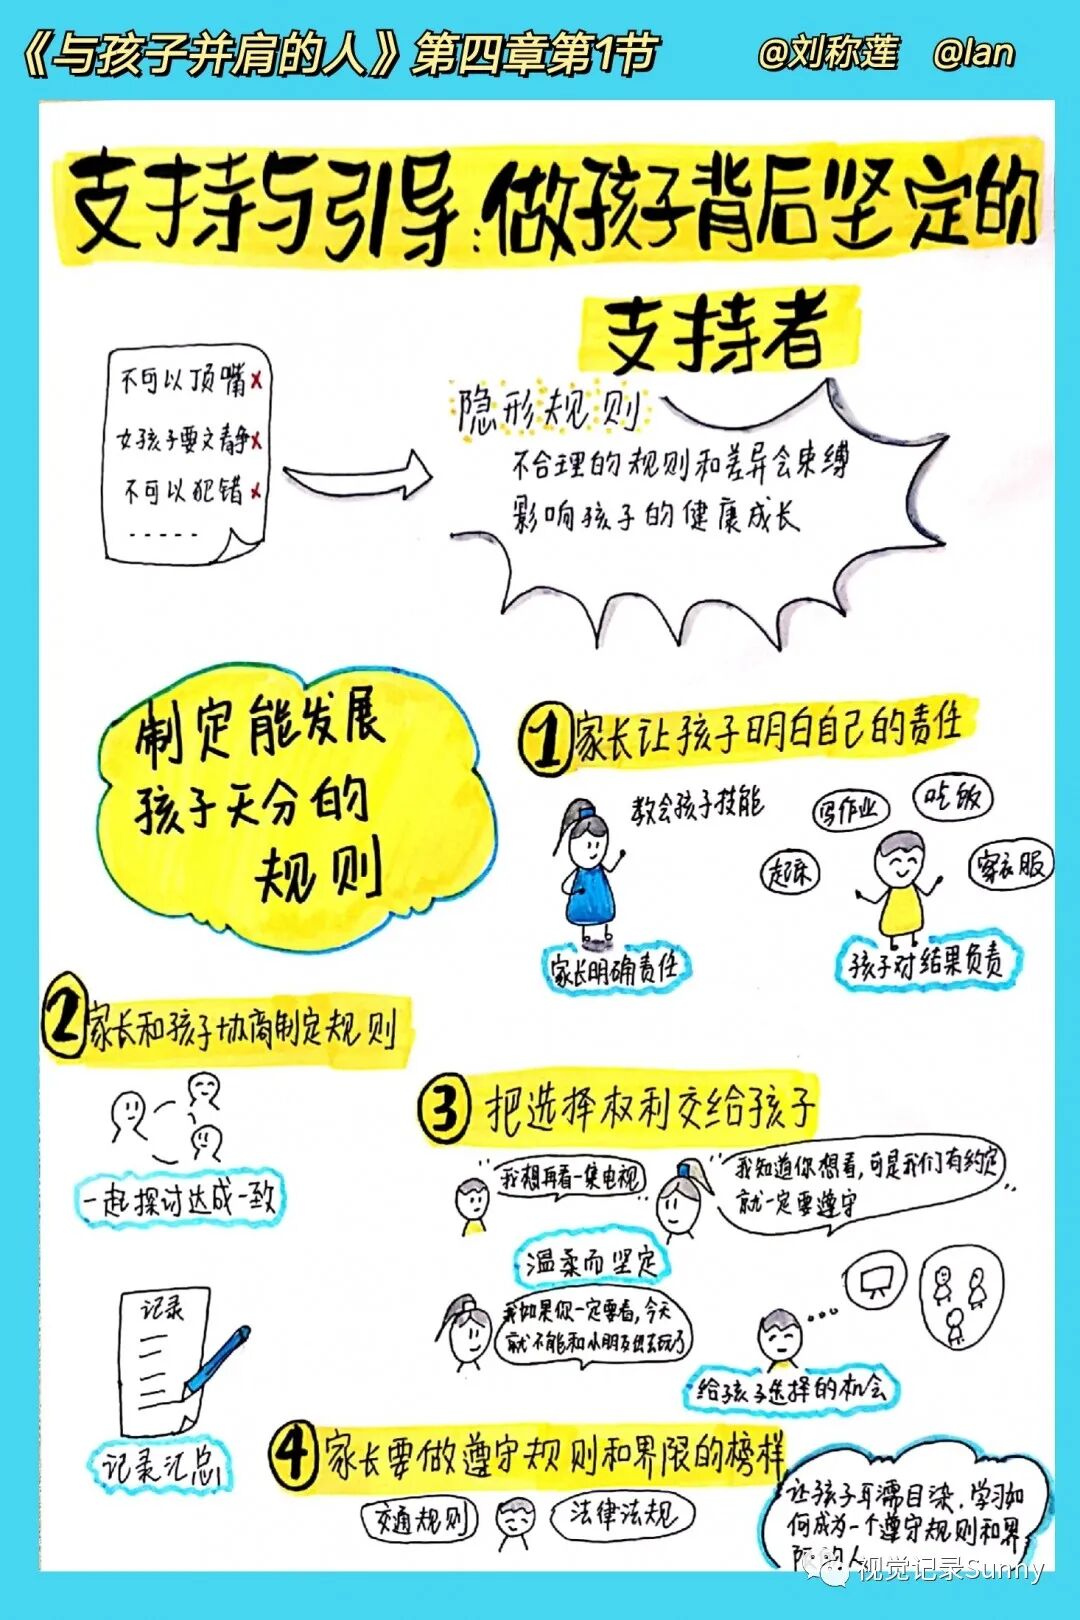 《与孩子并肩的人》第四章第1节
@刘称莲 @lan
支持与引导:做孩子背后坚定的
支持者
不可以顶嘴x
女孩子要文静x
不可以犯错x
.....
隐形规则
不合理的规则和差异会束缚
影响孩子的健康成长
制定能发展
孩子天分的
规则
1 家长让孩子明白自己的责任
教会孩子技能
家长明确责任
起床
写作业
吃饭
穿衣服
孩子对结果负责
2 家长和孩子协商制定规则
一起探讨达成一致
记录
记录汇总
3 把选择权利交给孩子
我想再看一集电视
我知道你想看,可是我们有约定
就一定要遵守
温柔而坚定
我如果你一定要看,今天
就不能和小朋友出去玩了
给孩子选择的机会
4 家长要做遵守规则和界限的榜样
交通规则
法律法规
让孩子耳濡目染,学习如
何成为一个遵守规则和界
限的人
视觉记录Sunny